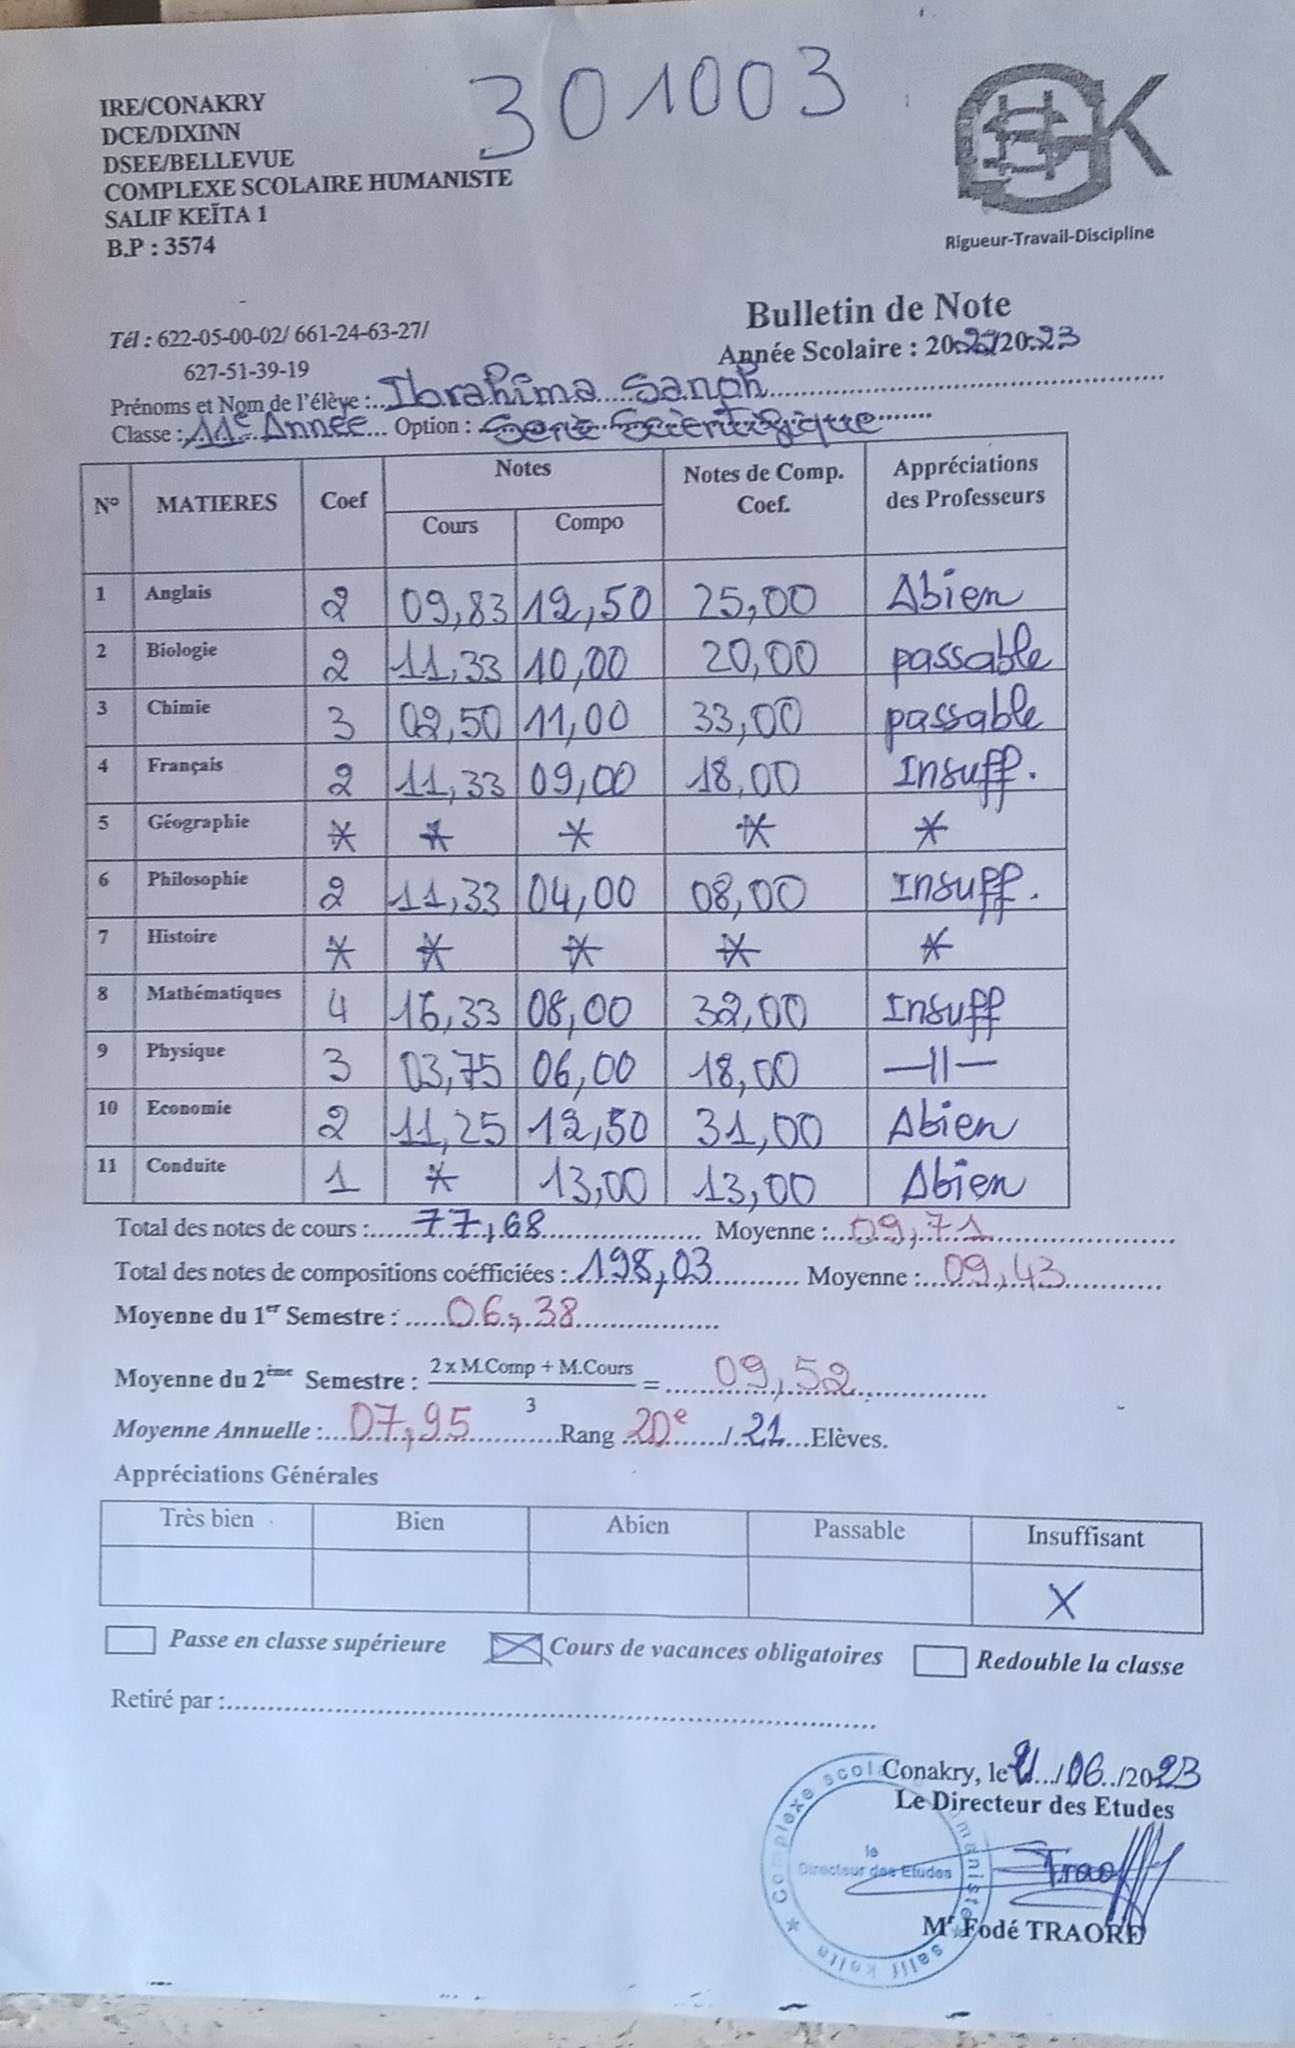 301003
IRE/CONAKRY
DCE/DIXINN
DSEE/BELLEVUE
COMPLEXE SCOLAIRE HUMANISTE
SALIF KEÏTA 1
B.P : 3574
Rigueur-Travail-Discipline
Tél : 622-05-00-02/ 661-24-63-27/
627-51-39-19
Bulletin de Note
Année Scolaire : 2022/2023
Prénoms et Nom de l'élève : Ibrahima Sanoh
Classe : 11e Année Option : Serie Scientifique
N° MATIERES Coef Notes Notes de Comp. Coef. Appréciations des Professeurs
Cours Compo
1 Anglais 2 09,83 12,50 25,00 Abien
2 Biologie 2 11,33 10,00 20,00 passable
3 Chimie 3 02,50 11,00 33,00 passable
4 Français 2 11,33 09,00 18,00 Insuff.
5 Géographie * * * * *
6 Philosophie 2 11,33 04,00 08,00 Insuff.
7 Histoire * * * * *
8 Mathématiques 4 16,33 08,00 32,00 Insuff
9 Physique 3 03,75 06,00 18,00 —||—
10 Economie 2 11,25 12,50 31,00 Abien
11 Conduite 1 * 13,00 13,00 Abien
Total des notes de cours : 77,68 Moyenne : 09,71
Total des notes de compositions coéfficiées : 198,03 Moyenne : 09,43
Moyenne du 1er Semestre : 06,38
Moyenne du 2ème Semestre : 2 x M.Comp + M.Cours / 3 = 09,52
Moyenne Annuelle : 07,95 Rang 20e / 21 Elèves.
Appréciations Générales
Très bien Bien Abien Passable Insuffisant
X
Passe en classe supérieure Cours de vacances obligatoires Redouble la classe
Retiré par :
Conakry, le 21/06/2023
Le Directeur des Etudes
le
Directeur des Etudes
Mr Fodé TRAORE